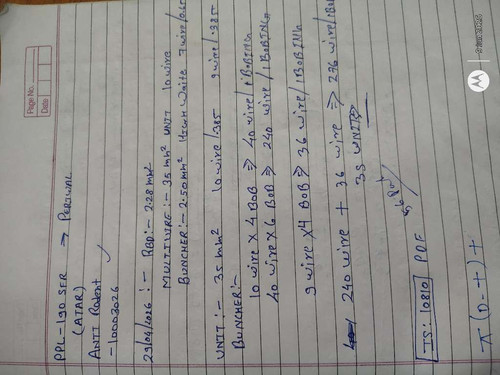 Page No.
Date
PPL-190 SFR → PERIWAL
(ATAR)
ANTI Rodent
-10003026
29/04/2026 :- RBD:- 2.28 mm²
MULTIWIRE:- 35 mm² UNIT 10 wire
BUNCHER:- 2.50 mm² HIGH Write 7 wire/0.65
UNIT:- 35 mm² 10 wire/.385 9 wire/.385
BUNCHER:-
10 wire × 4 BOB ⇒ 40 wire/1 BOBING
40 wire × 6 BOB ⇒ 240 wire/1 BOBING
9 wire × 4 BOB ⇒ 36 wire/1 BOBING
240 wire + 36 wire ⇒ 276 wire/1 BOB
35 UNIT
IS: 10810 PDF
π (D - t) t